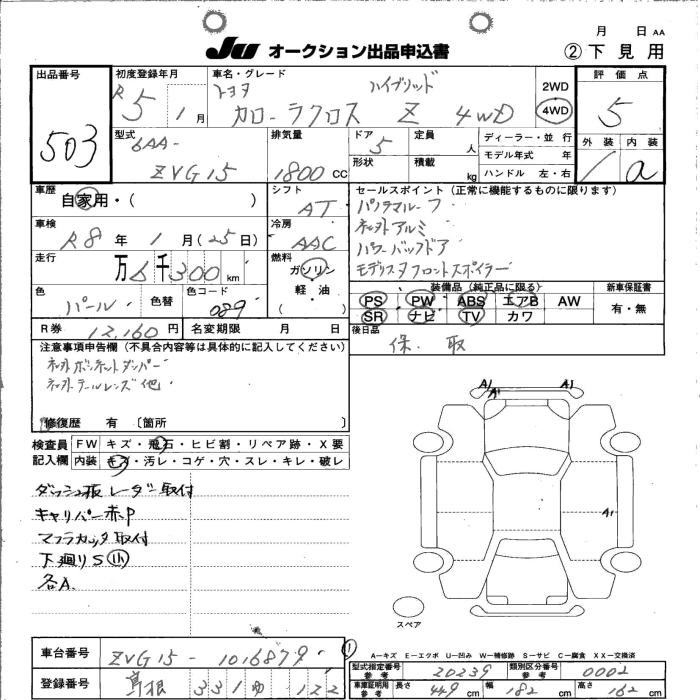 月 日 AA
JU オークション出品申込書 ②下見用
出品番号 503
初度登録年月 R5 1月
車名・グレード トヨタ ハイブリッド
カローラクロス Z 4WD
2WD
4WD
評価点 5
外装 1 内装 a
型式 6AA-
ZVG15
排気量 1800 CC
ドア 5
形状
定員 人
積載 kg
ディーラー・並行
モデル年式 年
ハンドル 左・右
車歴 自家用・( )
シフト AT
車検 R8年 1月(25日)
冷房 AAC
走行 万6千300km
燃料 ガソリン
軽・油
( )
色 パール 色替
色コード 089
R券 12,160円 名変期限 月 日
セールスポイント(正常に機能するものに限ります)
パノラマルーフ
社外アルミ
パワーバックドア
モデリスタフロントスポイラー
装備品(純正品に限る) 新車保証書
PS PW ABS エアB AW 有・無
SR ナビ TV カワ
後日品 保、取
注意事項申告欄(不具合内容等は具体的に記入してください)
社外ボンネットダンパー
社外テールレンズ他
修復歴 有 〔箇所 〕
検査員
記入欄
FW キズ・飛石・ヒビ割・リペア跡・X要
内装 キズ・汚レ・コゲ・穴・スレ・キレ・破レ
ダッシュ板レーダー取付
キャリパー赤P
マフラカッタ取付
下廻りS小
各A.
A1 A1
A1
A1
スペア
A-キズ E-エクボ U-凹み W-補修跡 S-サビ C-腐食 XX-交換済
車台番号 ZVG15-1016879
登録番号 島根 331 ゆ 122
①
型式指定番号 参考 20239 類別区分番号 参考 0002
車庫証明用 参考 長さ 449cm 幅 182cm 高さ 162cm